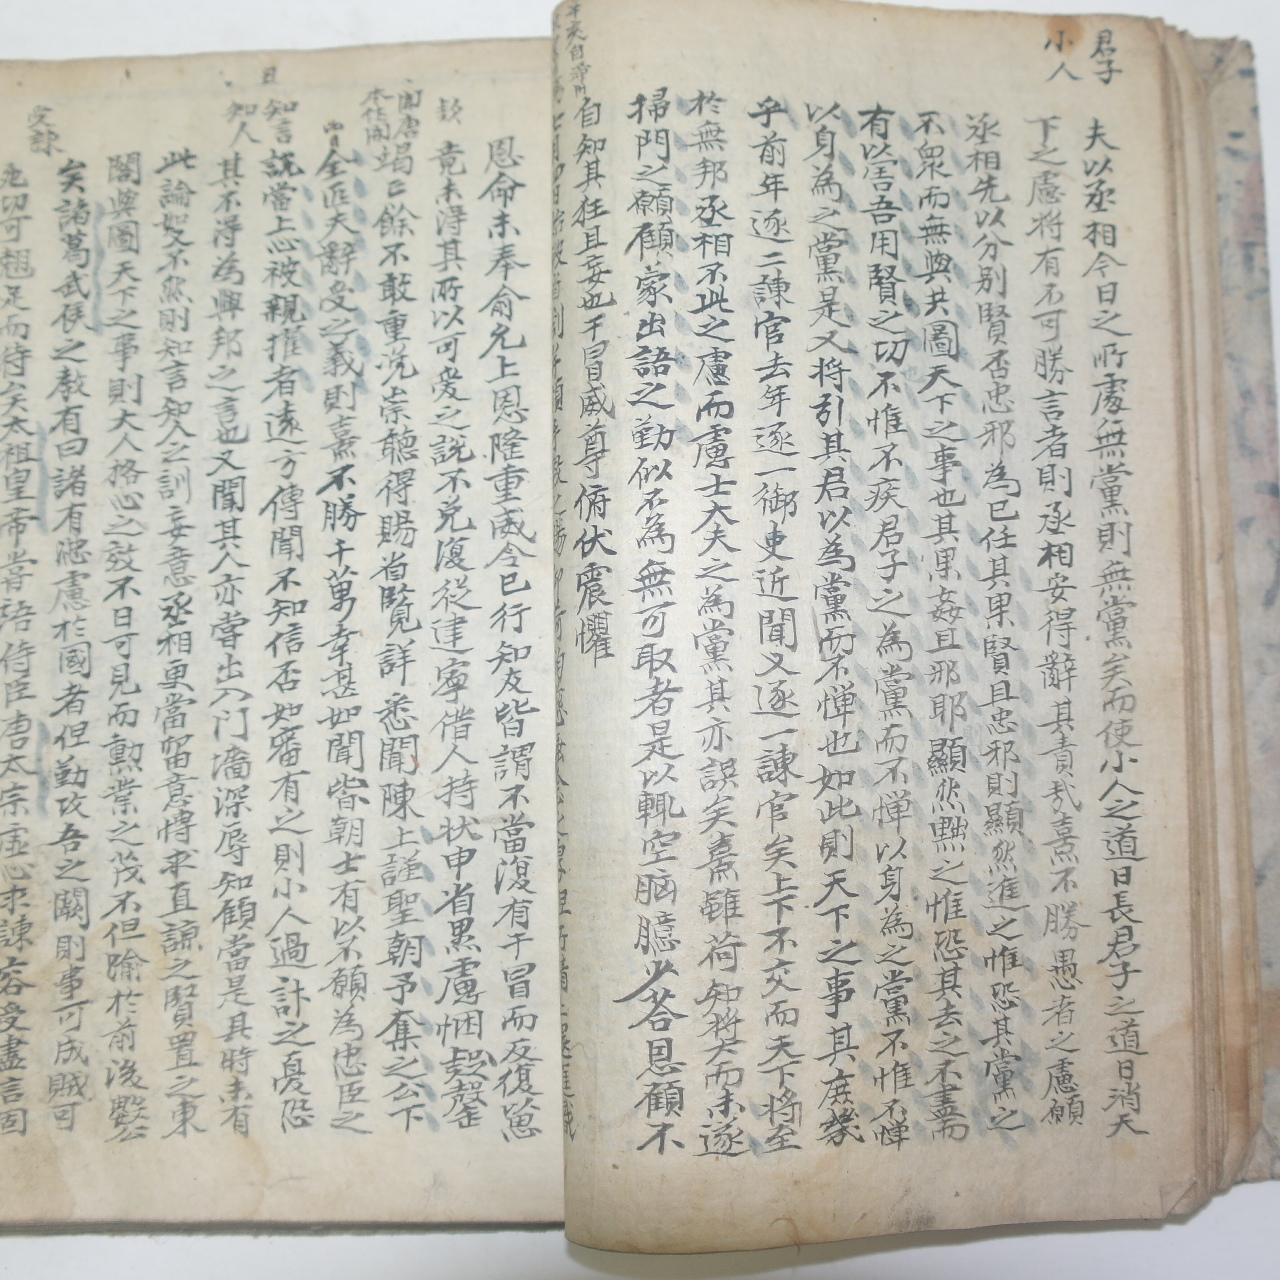 君子
小人
夫以丞相今日之所處無黨則無黨矣而使小人之道日長君子之道日消天
下之慮將有不可勝言者則丞相安得辭其責哉熹不勝愚者之慮願
丞相先以分别賢否忠邪為已任其果賢且忠邪則顯然進之惟恐其黨之
不衆而無與共圖天下之事也其果姦且邪耶顯然黜之惟恐其去之不盡而
有以害吾用賢之切不惟不疾君子之為黨而不憚以身為之黨不惟不憚
以身為之黨是又將引其君以為黨而不憚也如此則天下之事其庶幾
乎前年逐二諫官去年逐一御史近聞又逐一諫官矣上下不交而天下將至
於無邦丞相不此之慮而慮士大夫之為黨其亦誤矣熹雖荷知將而未遂
掃門之願顧家出語之勤似不為無可取者是以輒空腦臆少荅恩顧不
自知其狂且妄也干冒威尊俯伏震懼
恩命未奉俞允上恩隆重威令已行知友皆謂不當復有干冒而反復
竟未淂其所以可受之說不免復從建寧借人持状申省黒慮悃
欵
竭已餘不敢重浼崇聽得賜省覧詳悉聞陳上謹聖朝予奪之公下
全匹夫辭受之義則熹不勝千萬幸甚如聞皆朝士有以不願為忠臣之
說當上心被親擢者遠方傳聞不知信否如審有之則小人過計之憂恐
知言
其不淂為興邦之言也又聞其人亦嘗出入门墻深辱知顧當是其時未有
知人
此論如又不然則知言知人之訓妄意丞相更當留意愽求直諒之賢置之東
閤與圖天下之事則大人格心之效不日可見而勲業之茂不但隃於前後
矣諸葛武侯之教有曰諸有忠慮於國者但勤攻吾之闕則事可成賊可
死切可翹足而待矣太祖皇帝嘗語侍臣唐太宗虚心求諫容受盡言固